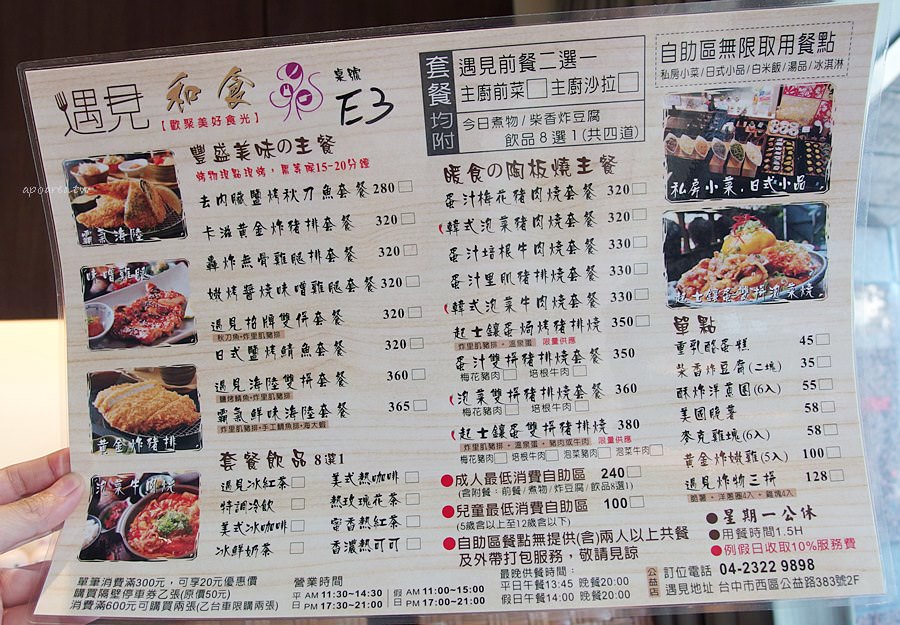 遇見 和食
【歡聚美好食光】
桌號
E3
套餐均附
遇見前餐二選一
主廚前菜□ 主廚沙拉□
今日煮物/柴香炸豆腐
飲品8選1(共四道)
自助區無限取用餐點
私房小菜/日式小品/白米飯/湯品/冰淇淋
私房小菜.日式小品
起士鑲蛋雙拼泡菜燒
豐盛美味の主餐
烤物現點現烤，需等候15-20分鐘
去肉臟鹽烤秋刀魚套餐 280□
卡滋黃金炸豬排套餐 320□
轟炸無骨雞腿排套餐 320□
嫩烤醬燒味噌雞腿套餐 320□
遇見招牌雙拼套餐 320□
秋刀魚+炸里肌豬排
日式鹽烤鯖魚套餐 320□
遇見海陸雙拼套餐 360□
鹽烤鯖魚+炸里肌豬排
霸氣鮮味海陸套餐 365□
炸里肌豬排+手工鱈魚排+海大蝦
霸氣海陸
味噌雞腿
黃金炸豬排
泡菜牛肉燒
套餐飲品 8選1
遇見冰紅茶□ 美式熱咖啡□
特調冷飲□ 熱玫瑰花茶□
美式冰咖啡□ 蜜香熱紅茶□
冰鮮奶茶□ 香濃熱可可□
暖食の陶板燒主餐
蛋汁梅花豬肉燒套餐 320□
韓式泡菜豬肉燒套餐 320□
蛋汁培根牛肉燒套餐 330□
蛋汁里肌豬排燒套餐 330□
韓式泡菜牛肉燒套餐 330□
起士鑲蛋焗烤豬排燒 350□
炸里肌豬排+溫泉蛋 限量供應
蛋汁雙拼豬排燒套餐 350
梅花豬肉□ 培根牛肉□
泡菜雙拼豬排燒套餐 360
梅花豬肉□ 培根牛肉□
起士鑲蛋雙拼豬排燒 380
炸里肌豬排+溫泉蛋+豬肉或牛肉 限量供應
梅花豬肉□ 培根牛肉□ 泡菜豬肉□ 泡菜牛肉□
●成人最低消費自助區 240□
(含附餐：前餐/煮物/炸豆腐/飲品8選1)
●兒童最低消費自助區 100□
(5歲含以上至12歲含以下)
●自助區餐點無提供(含)兩人以上共餐
及外帶打包服務，敬請見諒
單點
重乳酪蛋糕 45□
柴香炸豆腐(二塊) 35□
酥炸洋蔥圈(6入) 55□
美國脆薯 58□
麥克雞塊(6入) 58□
黃金炸嫩雞(5入) 100□
遇見炸物三拼 128□
脆薯+洋蔥圈4入+雞塊4入
●星期一公休
●用餐時間1.5H
●例假日收取10%服務費
單筆消費滿300元，可享20元優惠價
購買隔壁停車券乙張(原價50元)
消費滿600元可購買兩張(乙台車限購兩張)
營業時間
平日 AM 11:30~14:30 PM 17:30~21:00
假日 AM 11:00~15:00 PM 17:00~21:00
最晚供餐時間：
平日午餐13:45 晚餐20:00
假日午餐14:00 晚餐20:00
公益店
訂位電話 04-2322 9898
遇見地址 台中市西區公益路383號2F
apoarea.tw